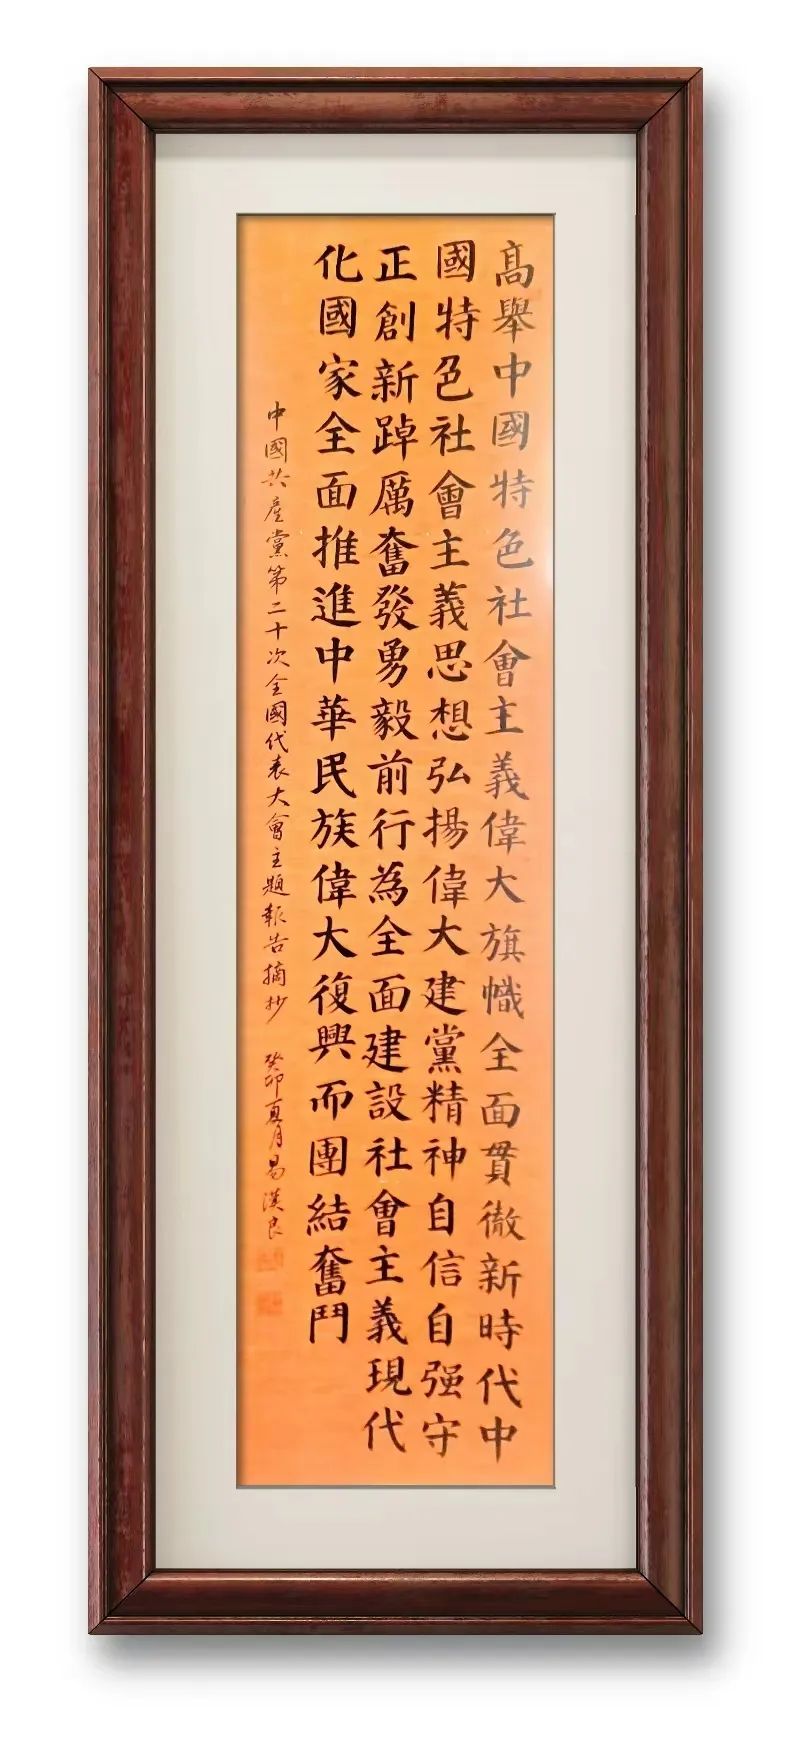 高舉中國特色社會主義偉大旗幟全面貫徹新時代中
國特色社會主義思想弘揚偉大建黨精神自信自强守
正創新踔厲奮發勇毅前行為全面建設社會主義現代
化國家全面推進中華民族偉大復興而團結奮鬥
中國共產黨第二十次全國代表大會主題報告摘抄 癸卯夏月易漢良